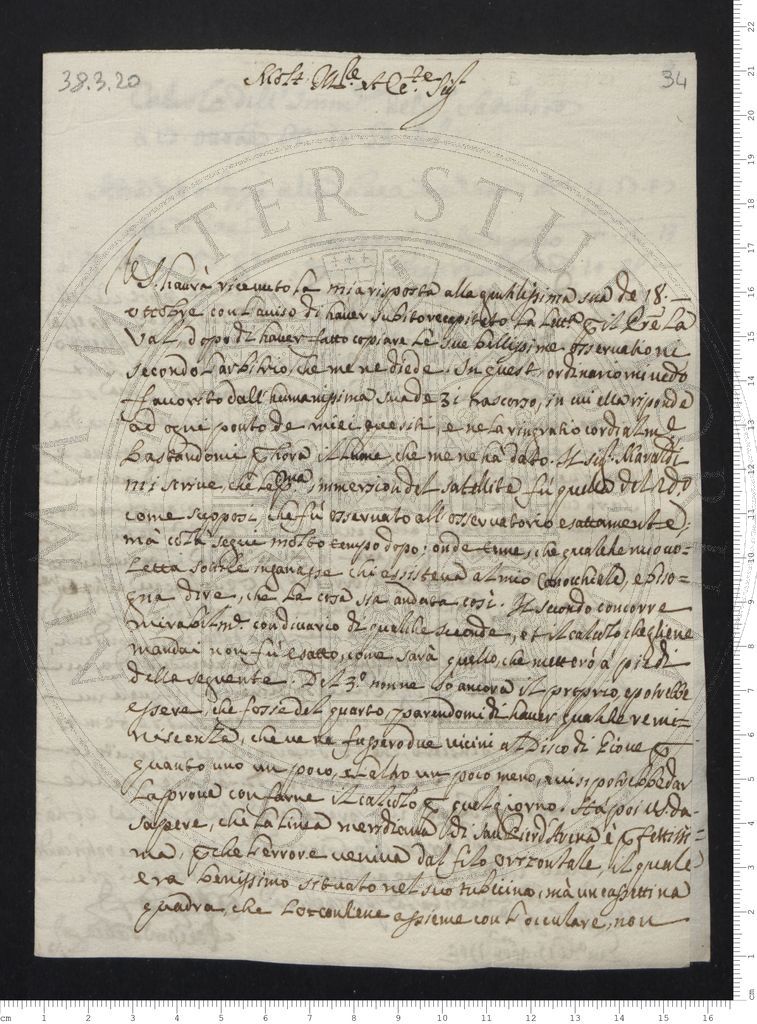 38.3.20
34
Molt' Ill.re et Ecc.te Sig.r
V. S. haurà riceuuto la mia risposta alla gentilissima sua de 18.
ottobre con l'auiso di hauer subito recapitato la lett.a il La
Val, dopo di hauer fatto copiare le sue bellissime osseruationi
secondo l'arbitrio, che me ne diede. In quest' ordinario mi uedo
fauorito dall' humanissima sua de 3i trascorso, in cui ella risponde
ad ogni ponto de miei quesiti, e ne la ringratio cordialm.e
bastandomi hora il lume, che me ne hà dato. Il sig.r Maraldi
mi scriue, che la p.ma immersion del satellite fù quella del 2do.
come supposi, che fù osseruato all' osseruatorio esattamente;
mà colà segue molto tempo dopo; onde teme, che qualche nuuo-
letta sottile ingannasse chi assisteua al mio Canochiale, e biso-
gna dire, che la cosa sia andata così. Il secondo concorre
mirabilm.e con diuario di qualche seconde, et il calcolo, che gliene
mandai non fù esatto, come sarà quello, che metterò à piedi
della seguente. Del 3.o non ne sò ancora il proprio, e potrebbe
essere, che fosse del quarto, parendomi di hauer qualche remi-
niscenza, che ue ne fussero due uicini al Disco di Gioue
quanto uno un poco, e l'altro un poco meno, mà si potrebbe dar
la proua con farne il calcolo quel giorno. Hà poi V.S. da
sapere, che la linea meridiana di San è
ma, che l'errore ueniua dal filo orizontale, il quale
era benissimo situato nel suo tubicino, mà una cassettina
quadra, che lo contiene assieme con l'oculare, non